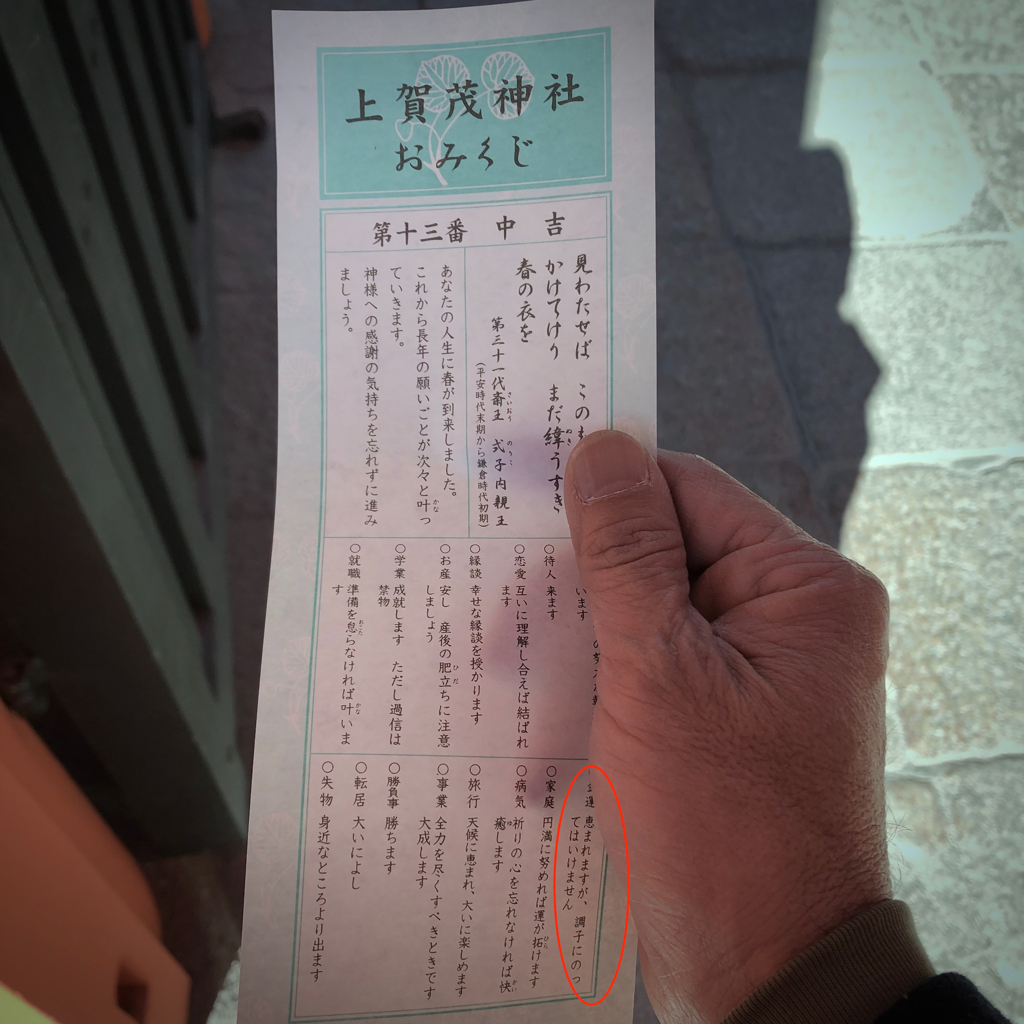 上賀茂神社
おみくじ
第十三番 中吉
見わたせば この
かけてけり まだ緯うすき
ぬき
春の衣を
第三十一代斎王 式子内親王
さいおう のりこ
(平安時代末期から鎌倉時代初期)
あなたの人生に春が到来しました。
これから長年の願いごとが次々と叶っ
かな
ていきます。
神様への感謝の気持ちを忘れずに進み
ましょう。
います
○待人 来ます
○恋愛 互いに理解し合えば結ばれ
ます
○縁談 幸せな縁談を授かります
○お産 安し 産後の肥立ちに注意
ひだ
しましょう
○学業 成就します ただし過信は
禁物
○就職 準備を怠らなければ叶いま
おこた かな
す
運 恵まれますが、調子にのっ
てはいけません
○家庭 円満に努めれば運が拓けます
ひら
○病気 祈りの心を忘れなければ快
かい
癒します
ゆ
○旅行 天候に恵まれ、大いに楽しめます
○事業 全力を尽くすべきときです
大成します
○勝負事 勝ちます
○転居 大いによし
○失物 身近なところより出ます